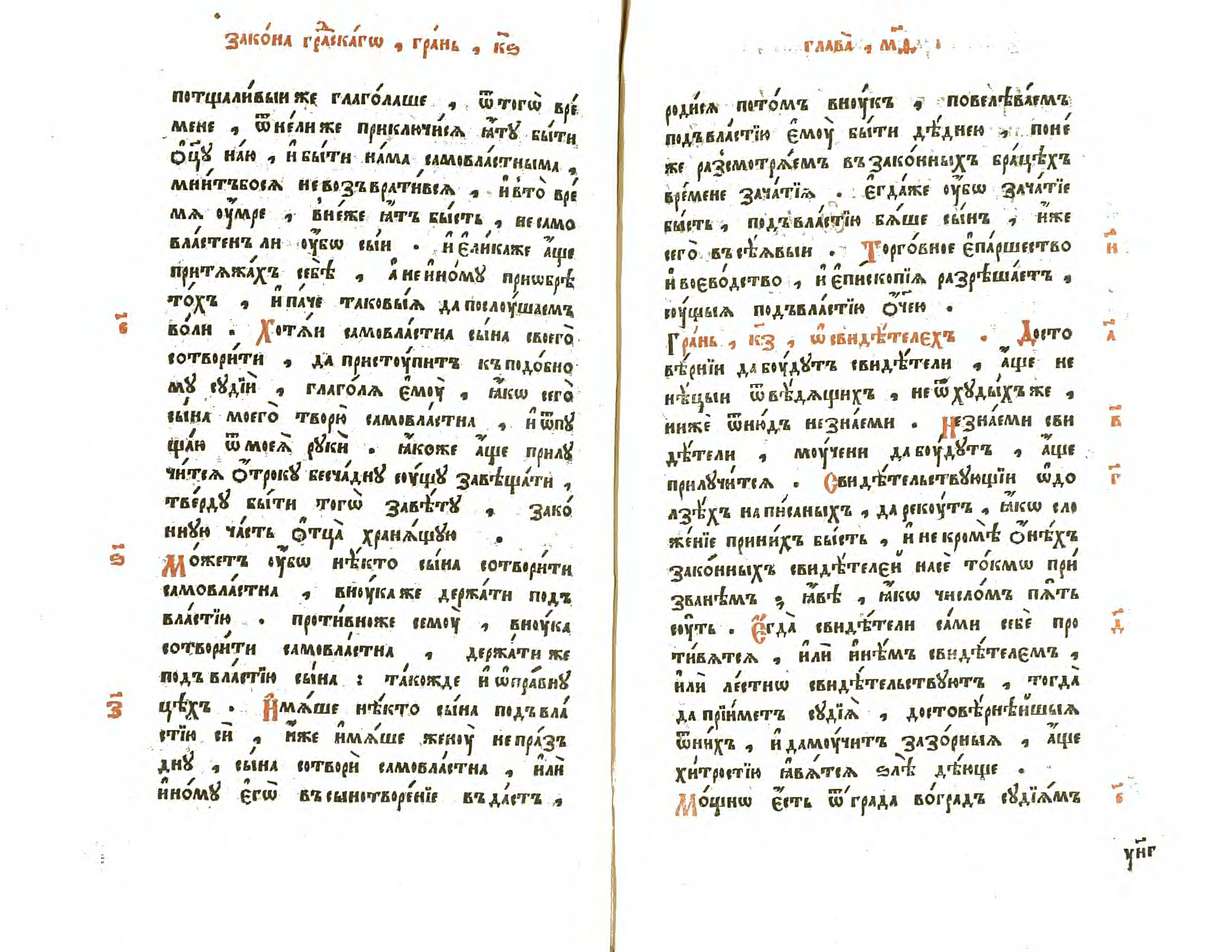 Зако́на гра́дскагѡ , гра́нь , к҃ѕ
потщали́выи же глаго́лаше , ѿ тогѡ̀ вре́
мене , ѿне́лиже приключи́сѧ ꙗ҆́ту бы́ти
ѻ҆ц҃у на́ю , и҆ бы́ти на́ма самовла́стныма ,
мни́тъбосѧ невозъврати́всѧ , и҆ в то̀ вре́
мѧ ᲂу҆́мре , вне́же ꙗ҆́тъ бы́сть , не само
вла́стенъ ли ᲂу҆́бѡ сы́и . и҆ є҆ли́каже а҆́ще
притѧжа́хъ себѣ̀ , а҆ не и҆но́му приѡбрѣ
то́хъ , и҆ па́че таковы́ѧ да послоу́шаемъ
во́ли . Хотѧ́и самовла́стна сы́на своего̀
сотвори́ти , да присту́питъ къ подо́бно
му судїѝ , глаго́лѧ є҆моу̀ , ꙗ҆́кѡ сего̀
сы́на моего̀ творю̀ самовла́стна , и҆ ѿпу
ща́ю ѿ моеѧ̀ рукѝ . ꙗ҆́коже а҆́ще прилу
чи́тсѧ ѻ҆́троку бесча́дну соу́щу завѣща́ти ,
тве́рду бы́ти тогѡ̀ завѣ́ту , зако́
нную ча́сть ѻ҆тца̀ хранѧ́щую .
Мо́жетъ ᲂу҆́бѡ нѣ́кто сы́на сотвори́ти
самовла́стна , вноу́ка же держа́ти подъ
вла́стїю . проти́вноже семоу̀ , вноу́ка
сотвори́ти самовла́стна , держа́ти же
подъ вла́стїю сы́на : та́кожде и҆ ѡ҆ пра́вну
цѣхъ . И҆мѧ́ше нѣ́кто сы́на подъ вла́
стїю сѝ , и҆́же и҆мѧ́ше женоу̀ непра́зъ
дну , сы́на сотворѝ самовла́стна , и҆лѝ
и҆но́му є҆го̀ въ сынотворе́нїе въда́стъ ,
ѕ҃
з҃
глава̀ , м҃д
роди́сѧ пото́мъ вноу́къ , повелѣва́емъ
подъ вла́стїю є҆моу̀ бы́ти дѣ́днею , поне́
же разсмотрѧ́емъ въ зако́нныхъ бра́цѣхъ
вре́мене зача́тїѧ . є҆гда́же ᲂу҆́бѡ зача́тїе
бы́сть , подъ вла́стїю бѧ́ше сы́нъ , и҆́же
сего̀ въсѣ́ѧвыи . Торго́вное є҆па́ршество
и҆ воево́дство , и҆ є҆пископі́ѧ разрѣша́етъ ,
соу́щыѧ подъ вла́стїю ѻ҆́чею .
Гра́нь , к҃з , ѡ҆ свидѣ́телехъ . До́сто
вѣ́рнїи да боу́дутъ свидѣ́тели , а҆́ще не
нѣ́цыи ѿ вѣ́дѧщихъ , не ѿ худы́хъ же ,
нижѐ ѿню́дъ незна́еми . Незна́еми сви
дѣ́тели , моу́чени да боу́дутъ , а҆́ще
прилучи́тсѧ . Свидѣ́тельствующїи ѡ҆ до
лзѣ́хъ напи́саныхъ , да рекоу́тъ , ꙗ҆́кѡ сло
же́нїе при ни́хъ бы́сть , и҆ не кромѣ̀ ѻ҆нѣ́хъ
зако́нныхъ свидѣ́телей насѐ то́кмѡ при́
званѣмъ ; ꙗ҆́вѣ , ꙗ҆́кѡ число́мъ пѧ́ть
соу́ть . Є҆гда̀ свидѣ́тели са́ми себѐ про
ти́вѧтсѧ , и҆лѝ и҆нѣ́мъ свидѣ́телемъ ,
и҆лѝ ле́стнѡ свидѣ́тельствуютъ , тогда̀
да прїи́метъ судїѧ̀ , достовѣ́рнѣйшыѧ
ѿ ни́хъ , и҆ да моу́читъ зазо́рныѧ , а҆́ще
хи́тростїю ꙗ҆вѧ́тсѧ ѕлѣ̀ дѣ́юще .
Мо́щнѡ є҆́сть ѿ гра́да во́градъ судїѧ́мъ
и҃
а҃
в҃
г҃
д҃
є҃
унг